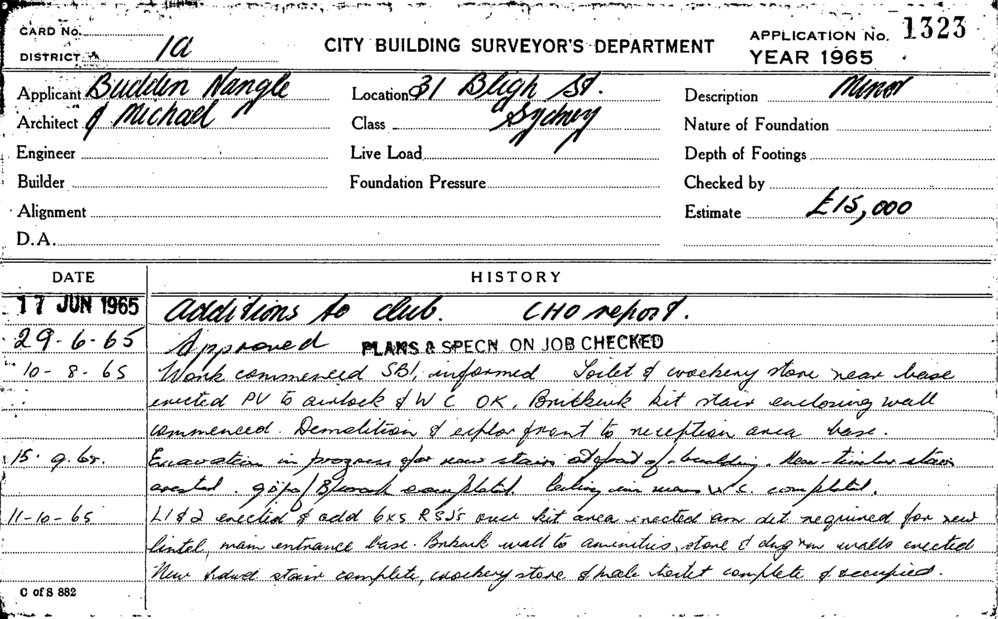 CARD No. CITY BUILDING SURVEYOR'S DEPARTMENT APPLICATION No. 1323
DISTRICT 1a YEAR 1965
Applicant Budden Nangle Location 31 Bligh St. Description Minor
Architect & Michael Class Sydney Nature of Foundation
Engineer Live Load Depth of Footings
Builder Foundation Pressure Checked by
Alignment Estimate £15,000
D.A.
DATE HISTORY
17 JUN 1965 Additions to club. CHO report.
29-6-65 Approved PLANS & SPECN. ON JOB CHECKED
10-8-65 Work commenced SBI, informed Toilet & crockery store near base
erected PV to airlock & WC OK, Brickwk kit stair enclosing wall
commenced. Demolition & explor front to reception area base.
15.9.65. Excavation in progress for new stairs at front of building. New timber stair
erected. completed. Ceiling in mens W.C. completed.
11-10-65 L1 & 2 erected & add 6x5 RSJs over kit area erected am det required for new
lintel, main entrance base. Brkwk wall to amenities, store & walls erected
New stair complete, crockery store & male toilet complete & occupied.
C of S 882